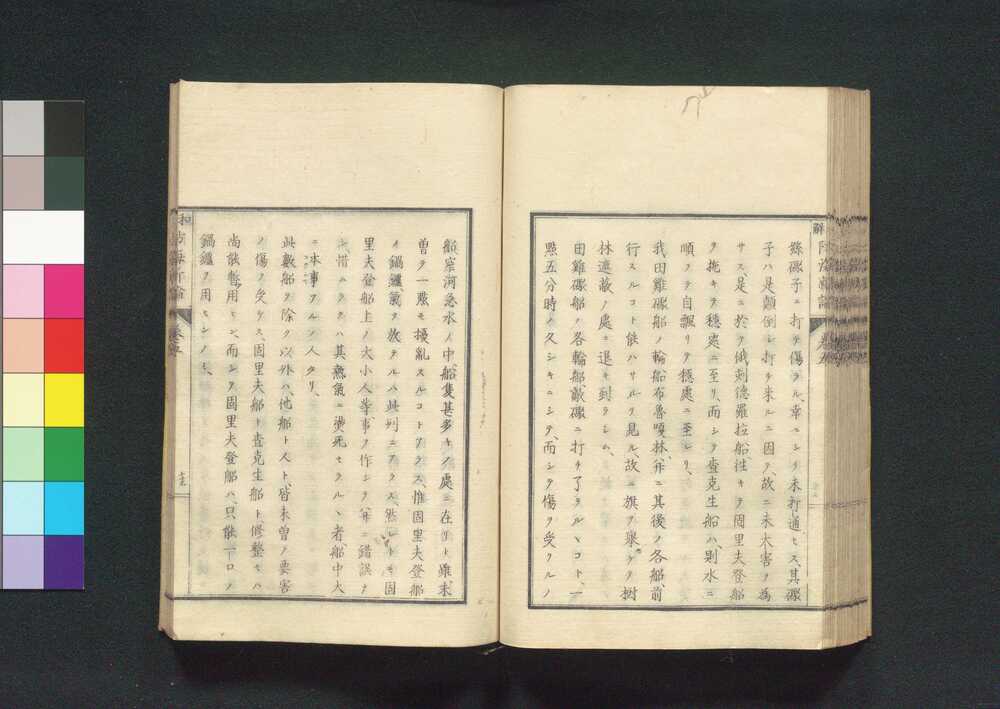 礮子ニ打チ傷ラル、幸ニシテ未打通セス、其礮
子ハ是顛倒シ打チ来ルニ因ヲ、故ニ未大害ヲ為
サス、是ニ於テ俄刺德羅拉船、往キヲ固里夫登船
ヲ掩キヲ穏處ニ至リ、而シヲ査克生船ハ則水ニ
順ヲヲ自飄リヲ穏處ニ至レリ、
我田雞礮船ノ輪船布魯嘎林、并ニ其後ノ各船、前
行スルコト能ハサルヲ見ル、故ニ旗ヲ擧ケヲ樹
林遮蔽ノ處ニ退キ到ラシム、
田雞礮船ノ各輪船、敵礮ニ打チ了ラルヽコト、一
點五分時ノ久シキニシヲ、而シヲ傷ヲ受クルノ
船、窄河急水ノ中、船隻甚多キノ處ニ在リト雖、未
曽ヲ一應モ擾亂スルコトアラス、惟固里夫登船
ノ鍋爐、氣ヲ放ヲルハ此列ニアラス、然レトモ固
里夫登船上ノ大小人等、事ヲ作シヲ并ニ錯誤ナ
シ、惜ムラクハ其熱氣ニ燙死セラルヽ者、船中大
ニ本事アルノ人タリ、
此數船ヲ除ク以外ハ、他船トスト、皆未曽ヲ要害
ノ傷ヲ受ケス、固里夫船ト査克生船ト修整セハ
尚能暫用セン、而シヲ固里夫登船ハ、只能一口ノ
鍋爐ヲ用ヒンノミ、